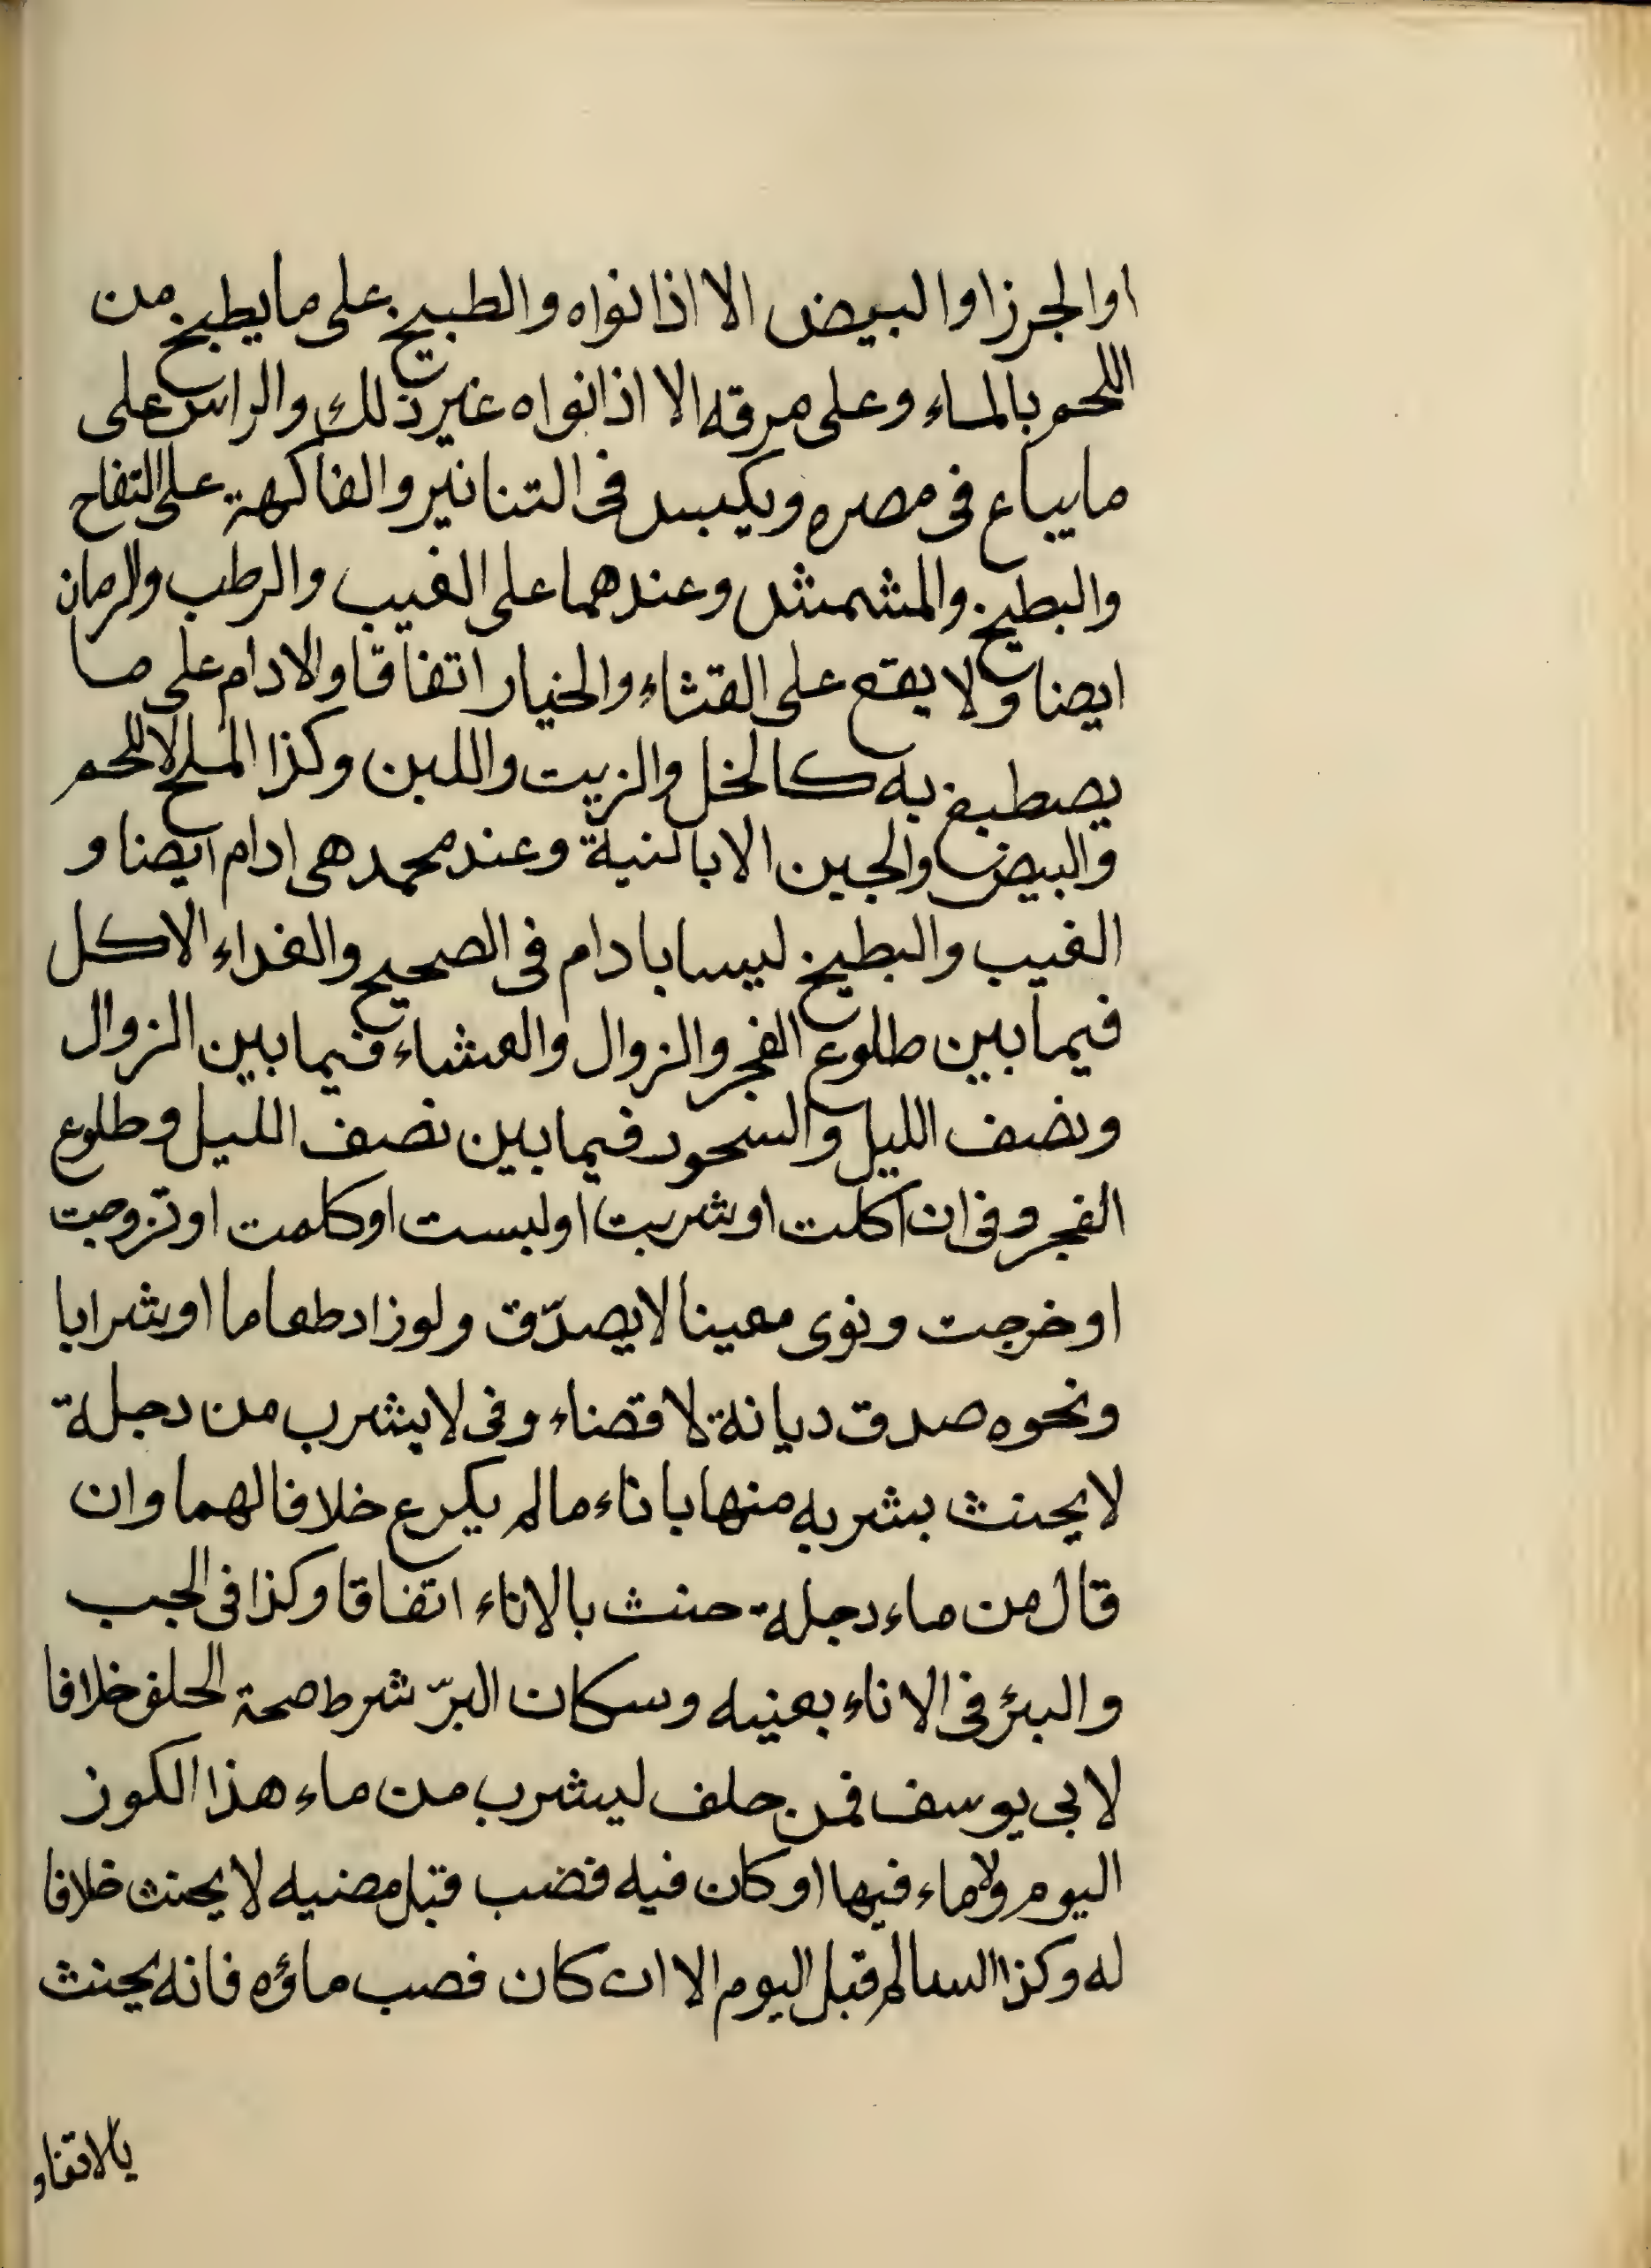 اوالجرز اوالبيض الا اذا نواه والطبيخ على ما يطبخ من
اللحم بالماء وعلى مرقه الا اذا نواه غير ذلك والراس على
ما يباع فى مصره ويكبس فى التنانير والفاكهة على التفاح
والبطيخ والمشمش وعندهما على الغيب والرطب والرمان
ايضا ولا يقع على القثاء والخيار اتفاقا والادام على ما
يصطبغ به كالخل والزيت واللبن وكذا الملح لا اللحم
والبيض والجبن الا بالنية وعند محمد هى ادام ايضا و
الغيب والبطيخ ليسا بادام فى الصحيح والغداء الاكل
فيما بين طلوع الفجر والزوال والعشاء فيما بين الزوال
ونصف الليل والسحور فيما بين نصف الليل وطلوع
الفجر وفى ان اكلت او شربت او لبست او كلمت او تزوجت
او خرجت ونوى معينا لا يصدّق ولو زاد طعاما او شرابا
ونحوه صدق ديانة لا قضاء وفى لا يشرب من دجلة
لا يحنث بشربه منها باناء ما لم يكرع خلافا لهما وان
قال من ماء دجلة حنث بالاناء اتفاقا وكذا فى الجب
والبئر فى الاناء بعينه وسكان البرّ شرط صحة الحلف خلافا
لابى يوسف فمن حلف ليشرب من ماء هذا الكوز
اليوم ولا ماء فيها او كان فيه فضب قبل مضيه لا يحنث خلافا
له وكذا السالم قبل اليوم الا ان كان فصب ماؤه فانه يحنث
بالاتفاو